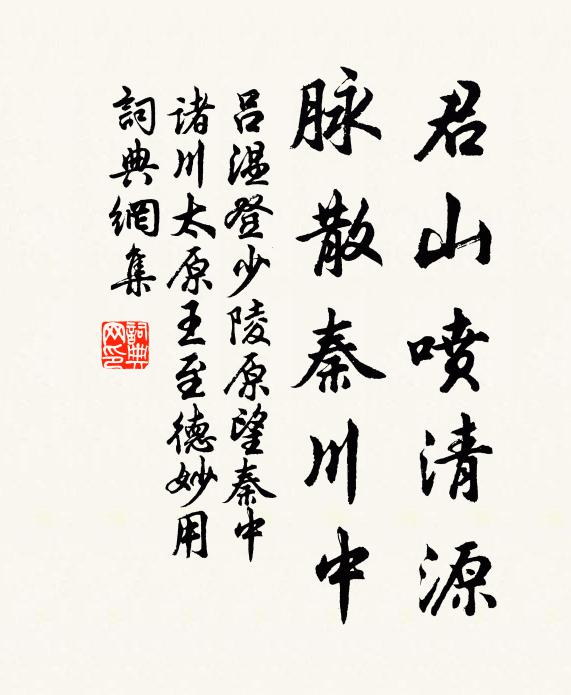 君山喷清源
脉散秦川中
吕温登少陵原望秦中
诸川太原王至德妙用
詞典網集
詞典网印